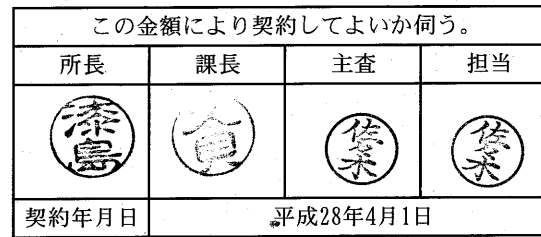 この金額により契約してよいか伺う。
所長 課長 主査 担当
漆島 佐々木 佐々木
契約年月日 平成28年4月1日